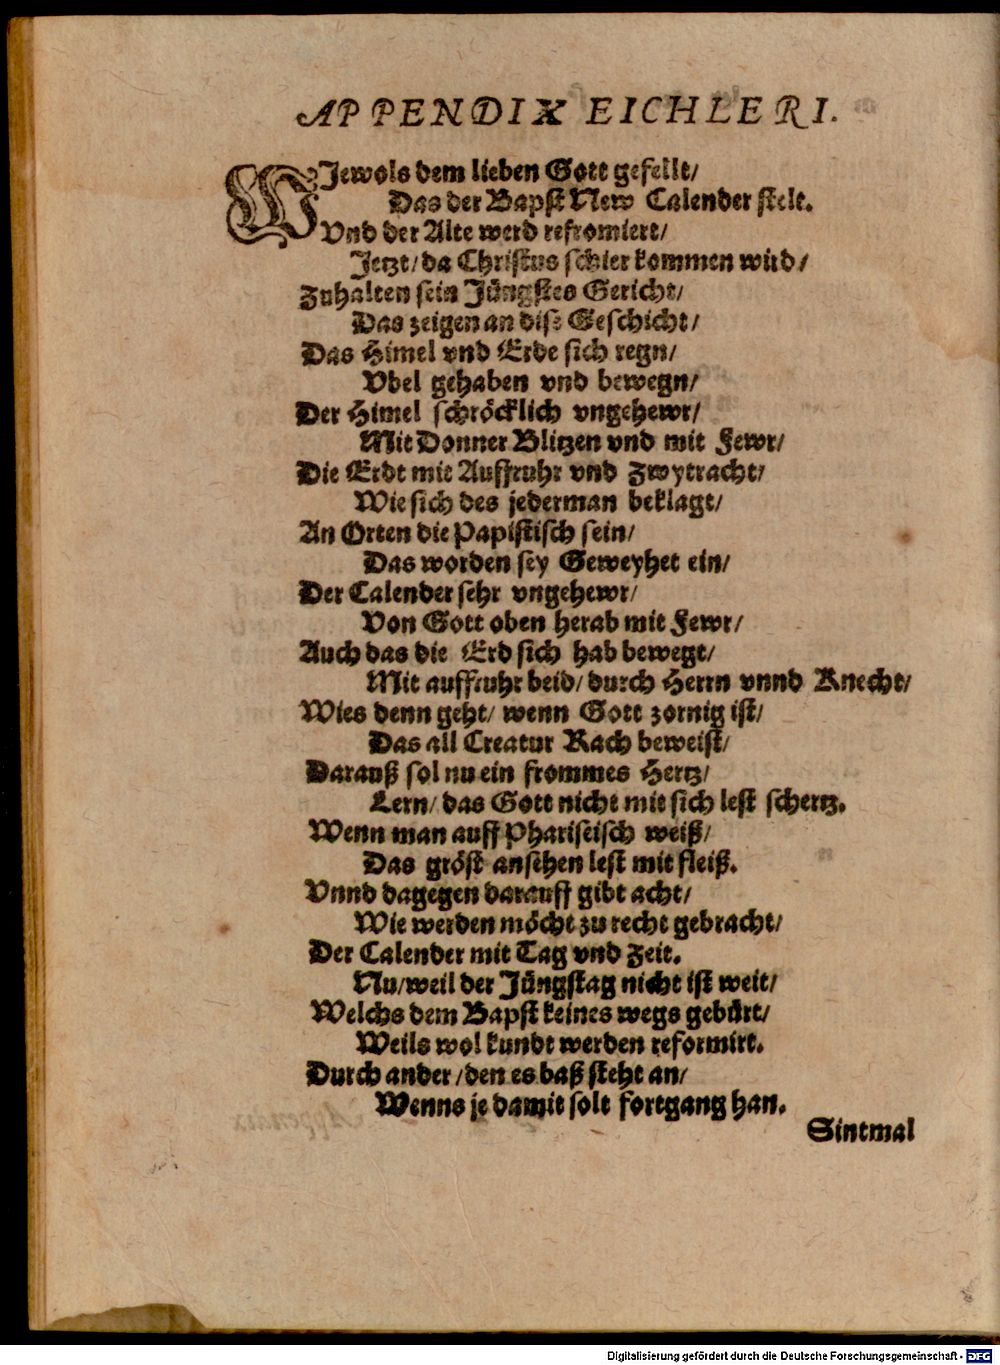 APPENDIX EICHLERI.
WJewols dem lieben Gott gefellt/
Das der Bapst New Calender stelt.
Vnd der Alte werd refromiert/
Jetzt/ da Christus schier kommen wird/
Zuhalten sein Jüngstes Gericht/
Das zeigen an dise Geschicht/
Das Himel vnd Erde sich regn/
Vbel gehaben vnd bewegn/
Der Himel schröcklich vngehewr/
Mit Donner Blitzen vnd mit Fewr/
Die Erdt mit Auffruhr vnd Zwytracht/
Wie sich des jederman beklagt/
An Orten die Papistisch sein/
Das worden sey Geweyhet ein/
Der Calender sehr vngehewr/
Von Gott oben herab mit Fewr/
Auch das die Erd sich hab bewegt/
Mit auffruhr beid/ durch Herrn vnnd Knecht/
Wies denn geht/ wenn Gott zornig ist/
Das all Creatur Rach beweist/
Darauß sol nu ein frommes Hertz/
Lern/ das Gott nicht mit sich lest schertz.
Wenn man auff Phariseisch weiß/
Das gröst ansehen lest mit fleiß.
Vnnd dagegen darauff gibt acht/
Wie werden möcht zu recht gebracht/
Der Calender mit Tag vnd Zeit.
Nu/weil der Jüngstag nicht ist weit/
Welchs dem Bapst keines wegs gebürt/
Weils wol kundt werden reformirt.
Durch ander/den es baß steht an/
Wenns je damit solt fortgang han.
Sintmal
Digitalisierung gefördert durch die Deutsche Forschungsgemeinschaft - DFG